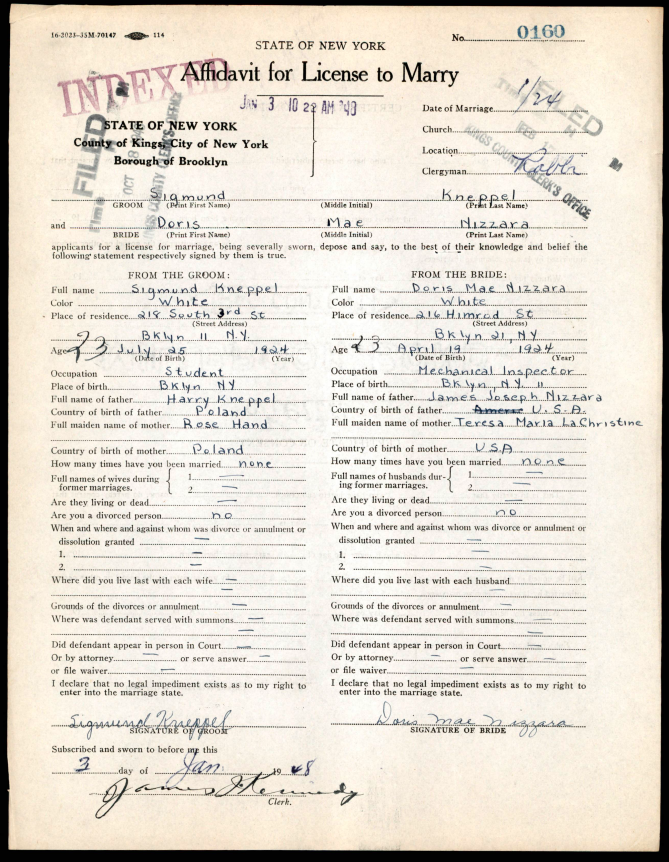 16-2023-35M-70147 114
No. 0160
STATE OF NEW YORK
Affidavit for License to Marry
INDEXED
JAN 3 10 22 AM '48
STATE OF NEW YORK
County of Kings, City of New York
Borough of Brooklyn
Time FILED M
OCT
KINGS COUNTY CLERK'S OFFICE
Date of Marriage 1/24
Church
Location
Clergyman Rabbi
Time FILED M
FEB
KINGS COUNTY CLERK'S OFFICE
Sigmund Kneppel
GROOM (Print First Name) (Middle Initial) (Print Last Name)
and Doris Mae Nizzara
BRIDE (Print First Name) (Middle Initial) (Print Last Name)
applicants for a license for marriage, being severally sworn, depose and say, to the best of their knowledge and belief the
following statement respectively signed by them is true.
FROM THE GROOM:
Full name Sigmund Kneppel
Color White
Place of residence 218 South 3rd St
(Street Address)
Bklyn 11 N.Y.
Age 23 July 25 1924
(Date of Birth) (Year)
Occupation Student
Place of birth Bklyn NY
Full name of father Harry Kneppel
Country of birth of father Poland
Full maiden name of mother Rose Hand
Country of birth of mother Poland
How many times have you been married none
Full names of wives during
former marriages. { 1. —
2. —
Are they living or dead —
Are you a divorced person no
When and where and against whom was divorce or annulment or
dissolution granted —
1. —
2. —
Where did you live last with each wife —
—
Grounds of the divorces or annulment —
Where was defendant served with summons —
—
Did defendant appear in person in Court —
Or by attorney — or serve answer —
or file waiver —
I declare that no legal impediment exists as to my right to
enter into the marriage state.
Sigmund Kneppel
SIGNATURE OF GROOM
FROM THE BRIDE:
Full name Doris Mae Nizzara
Color White
Place of residence 216 Himrod St
(Street Address)
Bklyn 21, NY
Age 23 April 19 1924
(Date of Birth) (Year)
Occupation Mechanical Inspector
Place of birth Bklyn, N.Y. 11
Full name of father James Joseph Nizzara
Country of birth of father Americ U.S.A.
Full maiden name of mother Teresa Maria LaChristine
Country of birth of mother USA
How many times have you been married none
Full names of husbands dur-
ing former marriages. { 1. —
2. —
Are they living or dead —
Are you a divorced person no
When and where and against whom was divorce or annulment or
dissolution granted —
1. —
2. —
Where did you live last with each husband
—
Grounds of the divorces or annulment —
Where was defendant served with summons —
—
Did defendant appear in person in Court —
Or by attorney — or serve answer —
or file waiver —
I declare that no legal impediment exists as to my right to
enter into the marriage state.
Doris Mae Nizzara
SIGNATURE OF BRIDE
Subscribed and sworn to before me this
3 day of Jan 19 48
James J Kennedy
Clerk.